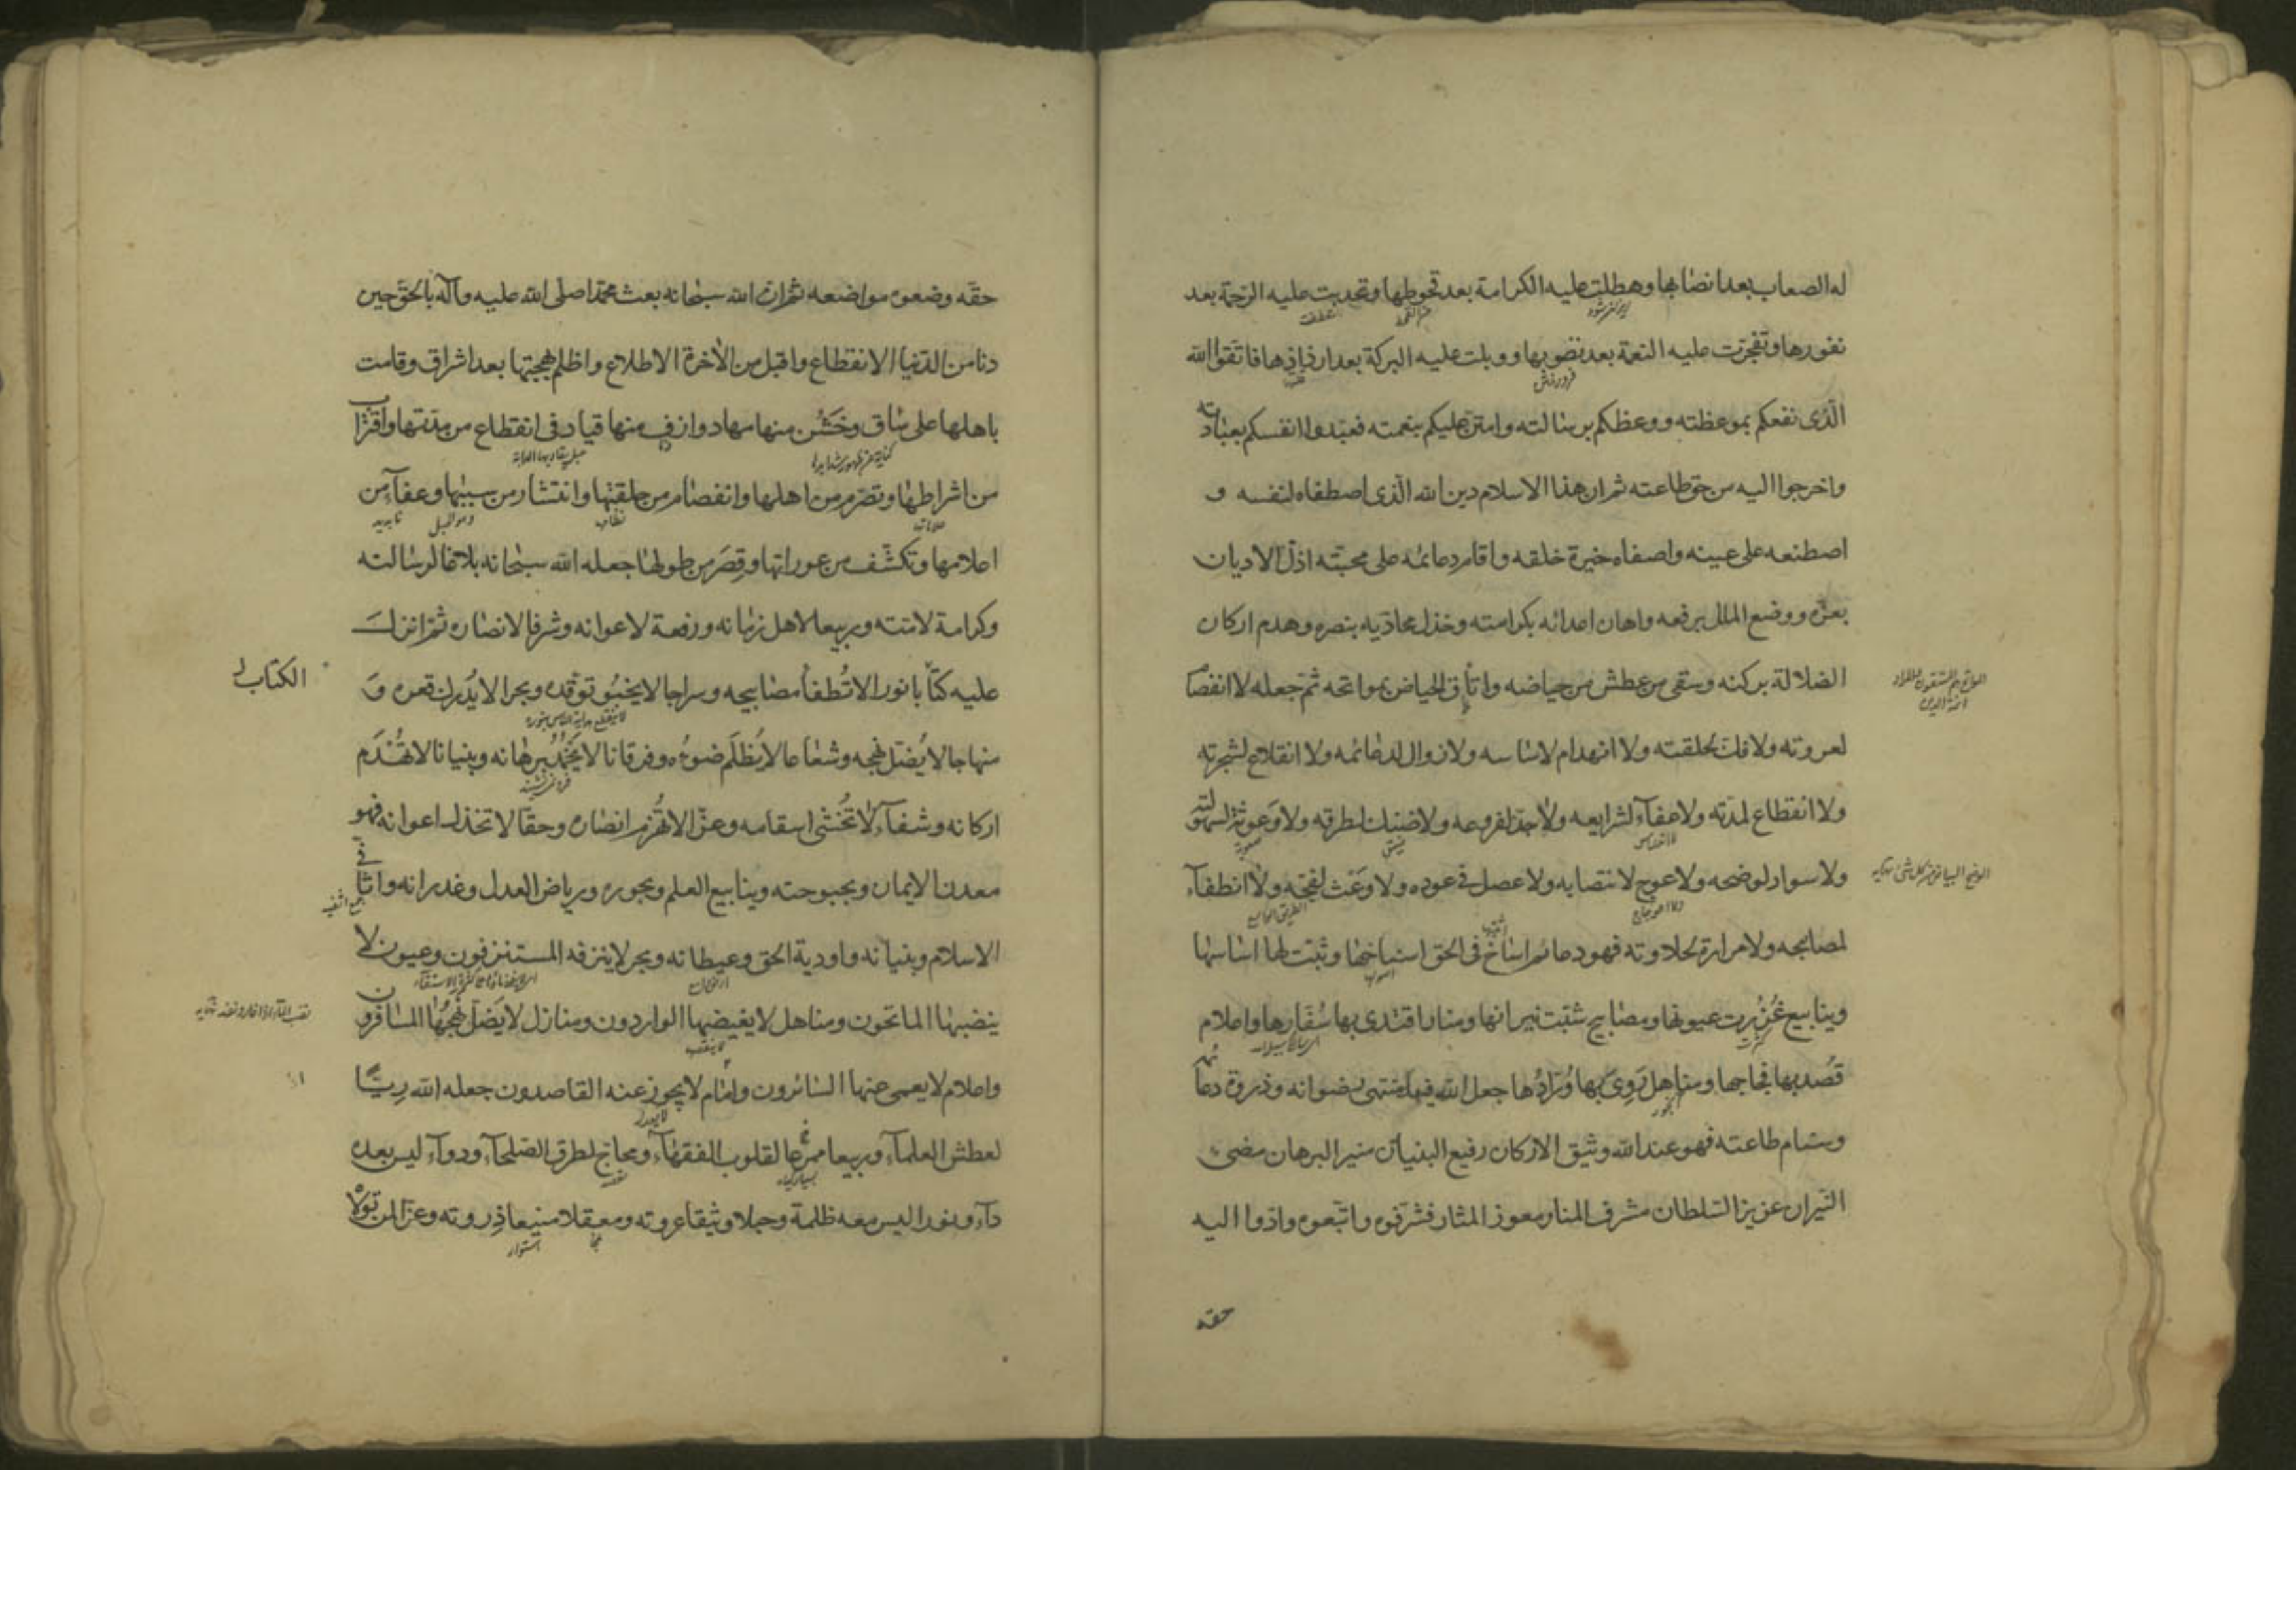 له الصعاب بعد انصابها وهطلت عليه الكرامة بعد قحوطها وتحدبت عليه الرحمة بعد
نفورها وتفجرت عليه النعمة بعد نضوبها ووبلت عليه البركة بعد ارذاذها فاتقوا الله
الذى نفعكم بموعظته ووعظكم برسالته وامتن عليكم بنعمته فعبدوا انفسكم بعبادته
واخرجوا اليه من حق طاعته ثم ان هذا الاسلام دين الله الذى اصطفاه لنفسه و
اصطنعه على عينه واصفاه خيرة خلقه واقام دعائمه على محبته اذل الاديان
بعزه ووضع الملل برفعه واهان اعدائه بكرامته وخذل محاديه بنصره وهدم اركان
الضلالة بركنه وسقى من عطش من حياضه واتأق الحياض بمواتحه ثم جعله لا انفصام
لعروته ولا فك لحلقته ولا انهدام لاساسه ولا زوال لدعائمه ولا انقلاع لشجرته
ولا انقطاع لمدته ولا عفآء لشرايعه ولا جذ لفروعه ولا ضنك لطرقه ولا وعوثة لسهولته
ولا سواد لوضحه ولا عوج لانتصابه ولا عصل فى عوده ولا وعث لفجه ولا انطفآء
لمصابيحه ولا مرارة لحلاوته فهو دعائم اساخ فى الحق اسناخها وثبت لها اساسها
وينابيع غزرت عيونها ومصابيح شبت نيرانها ومنار اقتدى بها سفارها واعلام
قصد بها فجاجها ومناهل روى بها ورادها جعل الله فيه منتهى رضوانه وذروة دعائمه
وسنام طاعته فهو عند الله وثيق الاركان رفيع البنيان منير البرهان مضىء
النيران عزيز السلطان مشرف المنار معوز المثار فشرفوه واتبعوه وادوا اليه
حقه
حقه وضعوه مواضعه ثم ان الله سبحانه بعث محمدا صلى الله عليه وآله بالحق حين
دنا من الدنيا الانقطاع واقبل من الآخرة الاطلاع واظلم بهجتها بعد اشراق وقامت
باهلها على ساق وخشن منها مهاد وازف منها قياد فى انقطاع من مدتها واقتراب
من اشراطها وتصرم من اهلها وانفصام من حلقتها وانتشار من سببها وعفآء من
اعلامها وتكشف من عوراتها وقصر من طولها جعله الله سبحانه بلاغا لرسالته
وكرامة لامته وربيعا لاهل زمانه ورفعة لاعوانه وشرفا لانصاره ثم انزل
عليه كتابا نورا لا تطفأ مصابيحه وسراجا لا يخبو توقده وبحرا لا يدرك قعره و
الكتاب
منهاجا لا يضل نهجه وشعاعا لا يظلم ضوءه وفرقانا لا يخمد برهانه وبنيانا لا تهدم
اركانه وشفآء لا تخشى اسقامه وعزا لا تهزم انصاره وحقا لا تخذل اعوانه فهو
معدن الايمان وبحبوحته وينابيع العلم وبحوره ورياض العدل وغدرانه واثافى
الاسلام وبنيانه واودية الحق وغيطانه وبحر لا ينزفه المستنزفون وعيون لا
ينضبها الماتحون ومناهل لا يغيضها الواردون ومنازل لا يضل نهجها المسافرون
واعلام لا يعمى عنها السائرون وآمام لا يجوز عنه القاصدون جعله الله ريا
لعطش العلمآء وربيعا ممرعا لقلوب الفقهآء ومحاج لطرق الصلحآء ودوآء ليس بعده
دآء ونورا ليس معه ظلمة وحبلا وثيقا عروته ومعقلا منيعا ذروته وعزا لمن تولاه